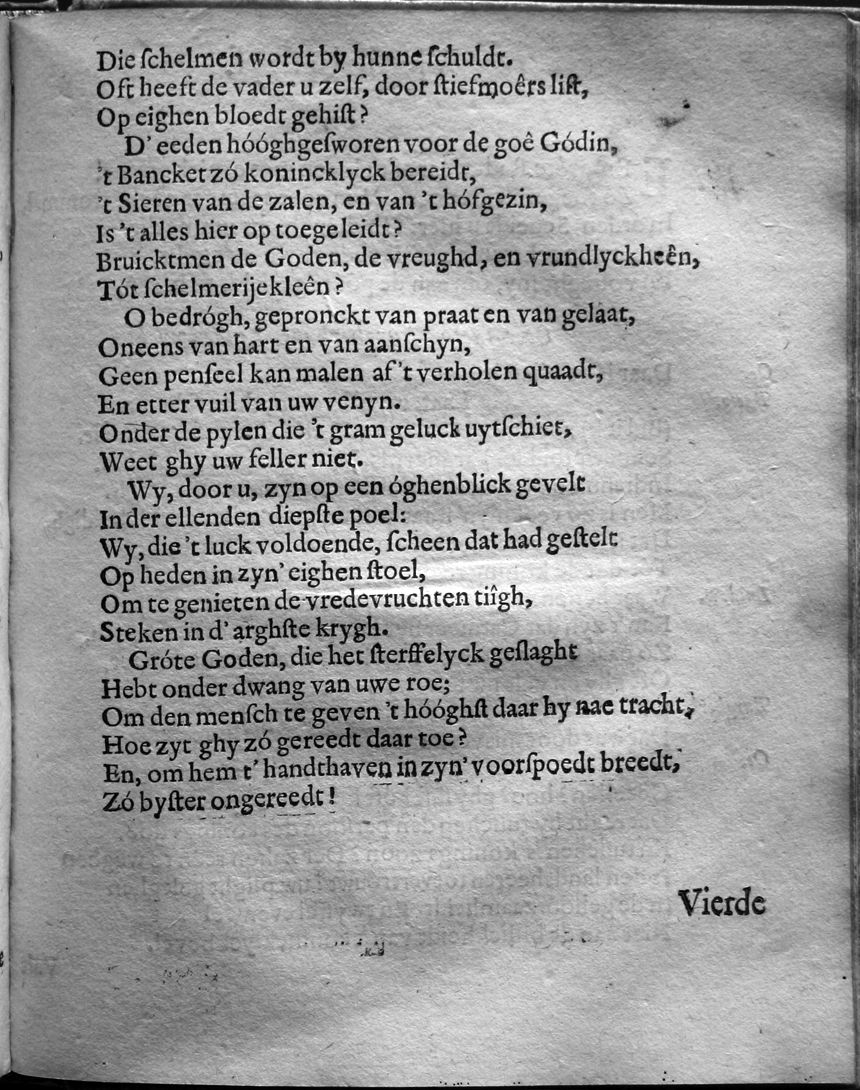 Die ſchelmen wordt by hunne ſchuldt.
Oft heeft de vader u zelf, door ſtiefmoêrs liſt,
Op eighen bloedt gehiſt?
D' eeden hóóghgeſworen voor de goê Gódin,
't Bancket zó konincklyck bereidt,
't Sieren van de zalen, en van 't hófgezin,
Is 't alles hier op toegeleidt?
Bruicktmen de Goden, de vreughd, en vrundlyckheên,
Tót ſchelmerijekleên?
O bedrógh, gepronckt van praat en van gelaat,
Oneens van hart en van aanſchyn,
Geen penſeel kan malen af 't verholen quaadt,
En etter vuil van uw venyn.
Onder de pylen die 't gram geluck uytſchiet,
Weet ghy uw feller niet.
Wy, door u, zyn op een óghenblick gevelt
In der ellenden diepſte poel:
Wy, die 't luck voldoende, ſcheen dat had geſtelt
Op heden in zyn' eighen ſtoel,
Om te genieten de vredevruchten tiîgh,
Steken in d' arghſte krygh.
Gróte Goden, die het ſterffelyck geſlaght
Hebt onder dwang van uwe roe;
Om den menſch te geven 't hóóghſt daar hy nae tracht,
Hoe zyt ghy zó gereedt daar toe?
En, om hem t' handthaven in zyn' voorſpoedt breedt,
Zó byſter ongereedt!
Vierde